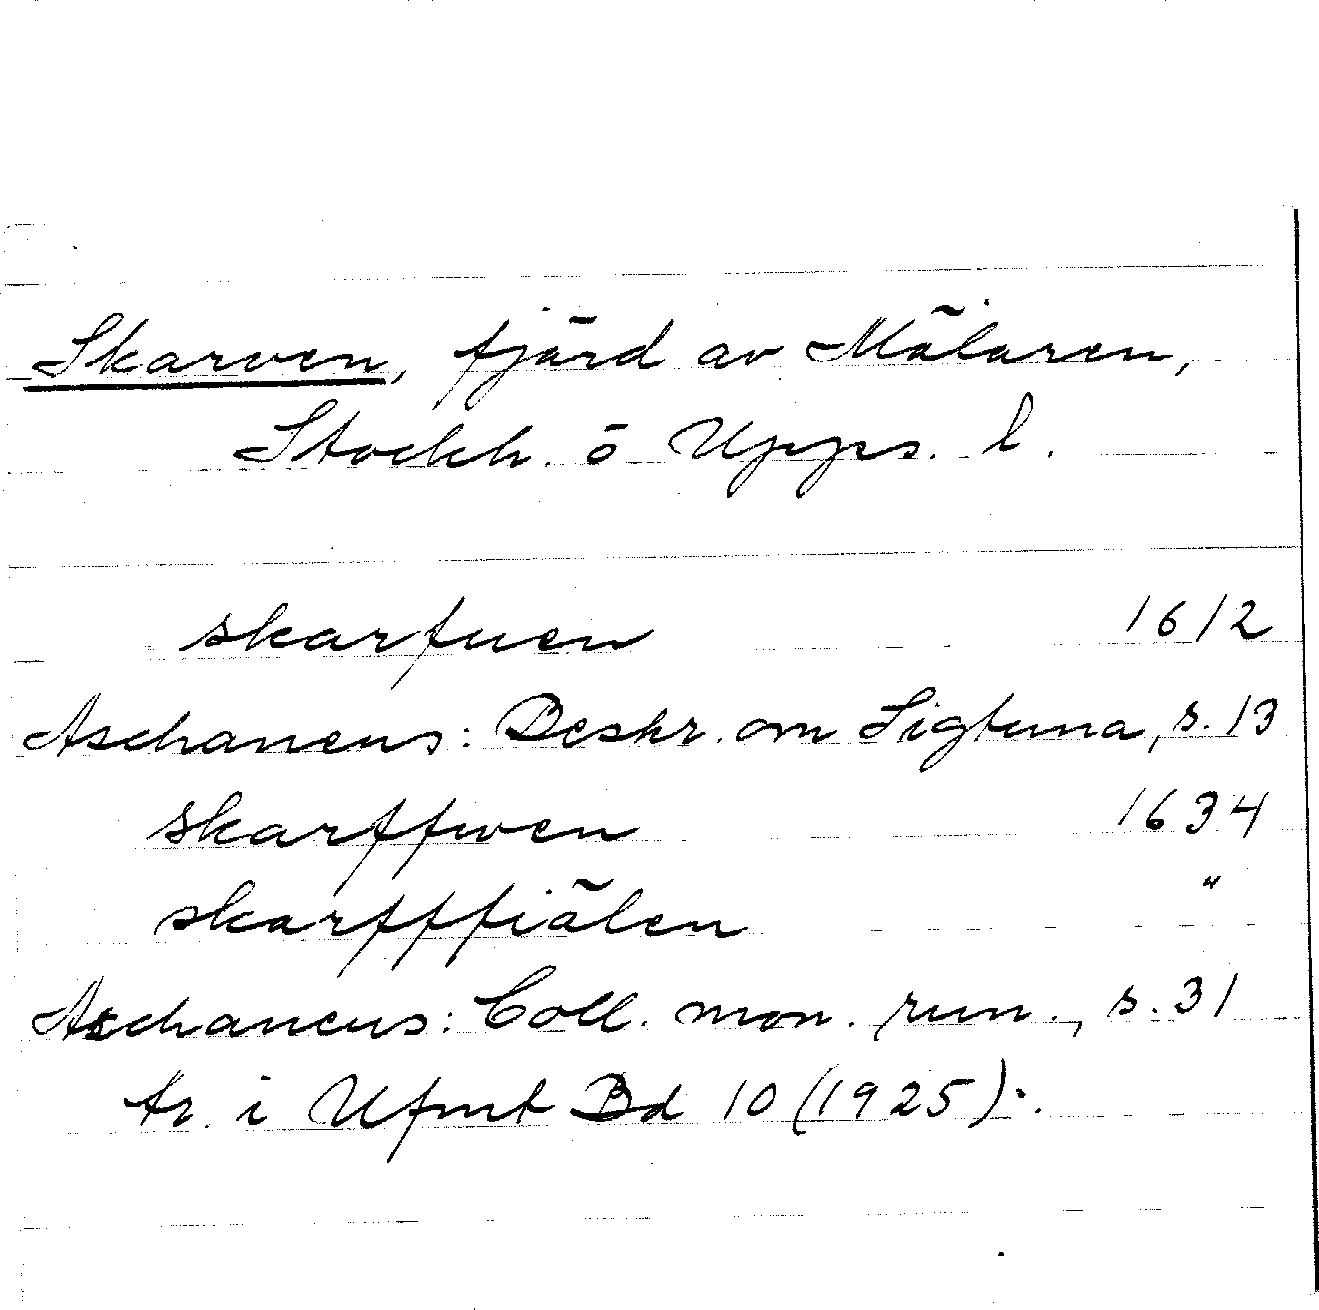 Skarven, fjärd av Mälaren,
Stockh. o Upps. l.
skarfuen 1612
Aschaneus: Beskr. om Sigtuna, s. 13
skarffwen 1634
skarfffiälen "
Aschaneus: Coll. mon. run., s. 31
tr. i Ufmt Bd 10 (1925).